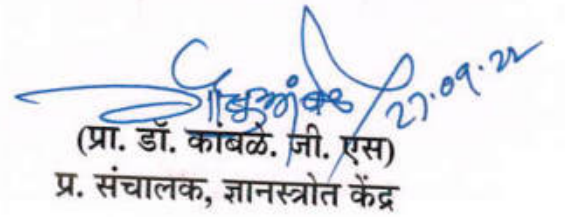 27.09.22
(प्रा. डॉ. कांबळे. जी. एस)
प्र. संचालक, ज्ञानस्त्रोत केंद्र